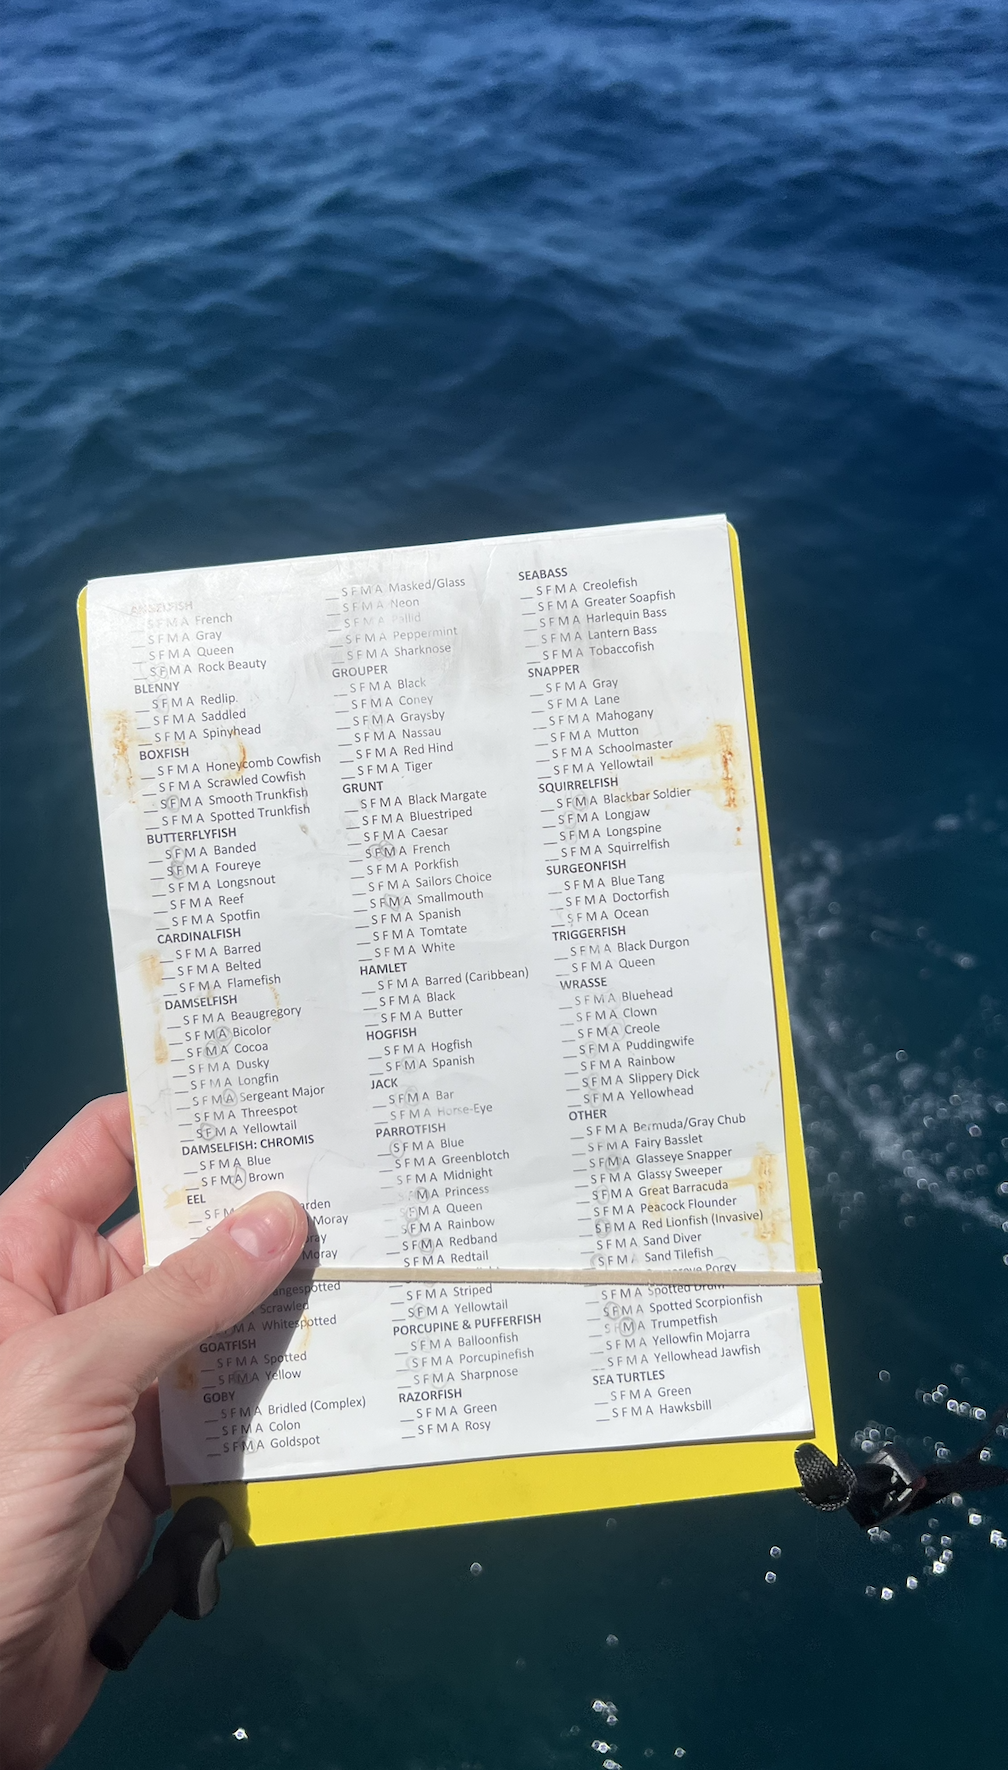 ANGELFISH
__ S F M A French
__ S F M A Gray
__ S F M A Queen
__ S F M A Rock Beauty
BLENNY
__ S F M A Redlip.
__ S F M A Saddled
__ S F M A Spinyhead
BOXFISH
__ S F M A Honeycomb Cowfish
__ S F M A Scrawled Cowfish
__ S F M A Smooth Trunkfish
__ S F M A Spotted Trunkfish
BUTTERFLYFISH
__ S F M A Banded
__ S F M A Foureye
__ S F M A Longsnout
__ S F M A Reef
__ S F M A Spotfin
CARDINALFISH
__ S F M A Barred
__ S F M A Belted
__ S F M A Flamefish
DAMSELFISH
__ S F M A Beaugregory
__ S F M A Bicolor
__ S F M A Cocoa
__ S F M A Dusky
__ S F M A Longfin
__ S F M A Sergeant Major
__ S F M A Threespot
__ S F M A Yellowtail
DAMSELFISH: CHROMIS
__ S F M A Blue
__ S F M A Brown
EEL
__ S F M
Moray
Moray
Scrawled
M A Whitespotted
GOATFISH
__ S F M A Spotted
__ S F M A Yellow
GOBY
__ S F M A Bridled (Complex)
__ S F M A Colon
__ S F M A Goldspot
__ S F M A Masked/Glass
__ S F M A Neon
__ S F M A Pallid
__ S F M A Peppermint
__ S F M A Sharknose
GROUPER
__ S F M A Black
__ S F M A Coney
__ S F M A Graysby
__ S F M A Nassau
__ S F M A Red Hind
__ S F M A Tiger
GRUNT
__ S F M A Black Margate
__ S F M A Bluestriped
__ S F M A Caesar
__ S F M A French
__ S F M A Porkfish
__ S F M A Sailors Choice
__ S F M A Smallmouth
__ S F M A Spanish
__ S F M A Tomtate
__ S F M A White
HAMLET
__ S F M A Barred (Caribbean)
__ S F M A Black
__ S F M A Butter
HOGFISH
__ S F M A Hogfish
__ S F M A Spanish
JACK
__ S F M A Bar
__ S F M A Horse-Eye
PARROTFISH
__ S F M A Blue
__ S F M A Greenblotch
__ S F M A Midnight
M A Princess
__ S F M A Queen
__ S F M A Rainbow
__ S F M A Redband
__ S F M A Redtail
__ S F M A Striped
__ S F M A Yellowtail
PORCUPINE & PUFFERFISH
__ S F M A Balloonfish
__ S F M A Porcupinefish
__ S F M A Sharpnose
RAZORFISH
__ S F M A Green
__ S F M A Rosy
SEABASS
__ S F M A Creolefish
__ S F M A Greater Soapfish
__ S F M A Harlequin Bass
__ S F M A Lantern Bass
__ S F M A Tobaccofish
SNAPPER
__ S F M A Gray
__ S F M A Lane
__ S F M A Mahogany
__ S F M A Mutton
__ S F M A Schoolmaster
__ S F M A Yellowtail
SQUIRRELFISH
__ S F M A Blackbar Soldier
__ S F M A Longjaw
__ S F M A Longspine
__ S F M A Squirrelfish
SURGEONFISH
__ S F M A Blue Tang
__ S F M A Doctorfish
__ S F M A Ocean
TRIGGERFISH
__ S F M A Black Durgon
__ S F M A Queen
WRASSE
__ S F M A Bluehead
__ S F M A Clown
__ S F M A Creole
__ S F M A Puddingwife
__ S F M A Rainbow
__ S F M A Slippery Dick
__ S F M A Yellowhead
OTHER
__ S F M A Bermuda/Gray Chub
__ S F M A Fairy Basslet
__ S F M A Glasseye Snapper
__ S F M A Glassy Sweeper
__ S F M A Great Barracuda
__ S F M A Peacock Flounder
__ S F M A Red Lionfish (Invasive)
__ S F M A Sand Diver
__ S F M A Sand Tilefish
Porgy
__ S F M A Spotted Drum
__ S F M A Spotted Scorpionfish
__ S F M A Trumpetfish
__ S F M A Yellowfin Mojarra
__ S F M A Yellowhead Jawfish
SEA TURTLES
__ S F M A Green
__ S F M A Hawksbill